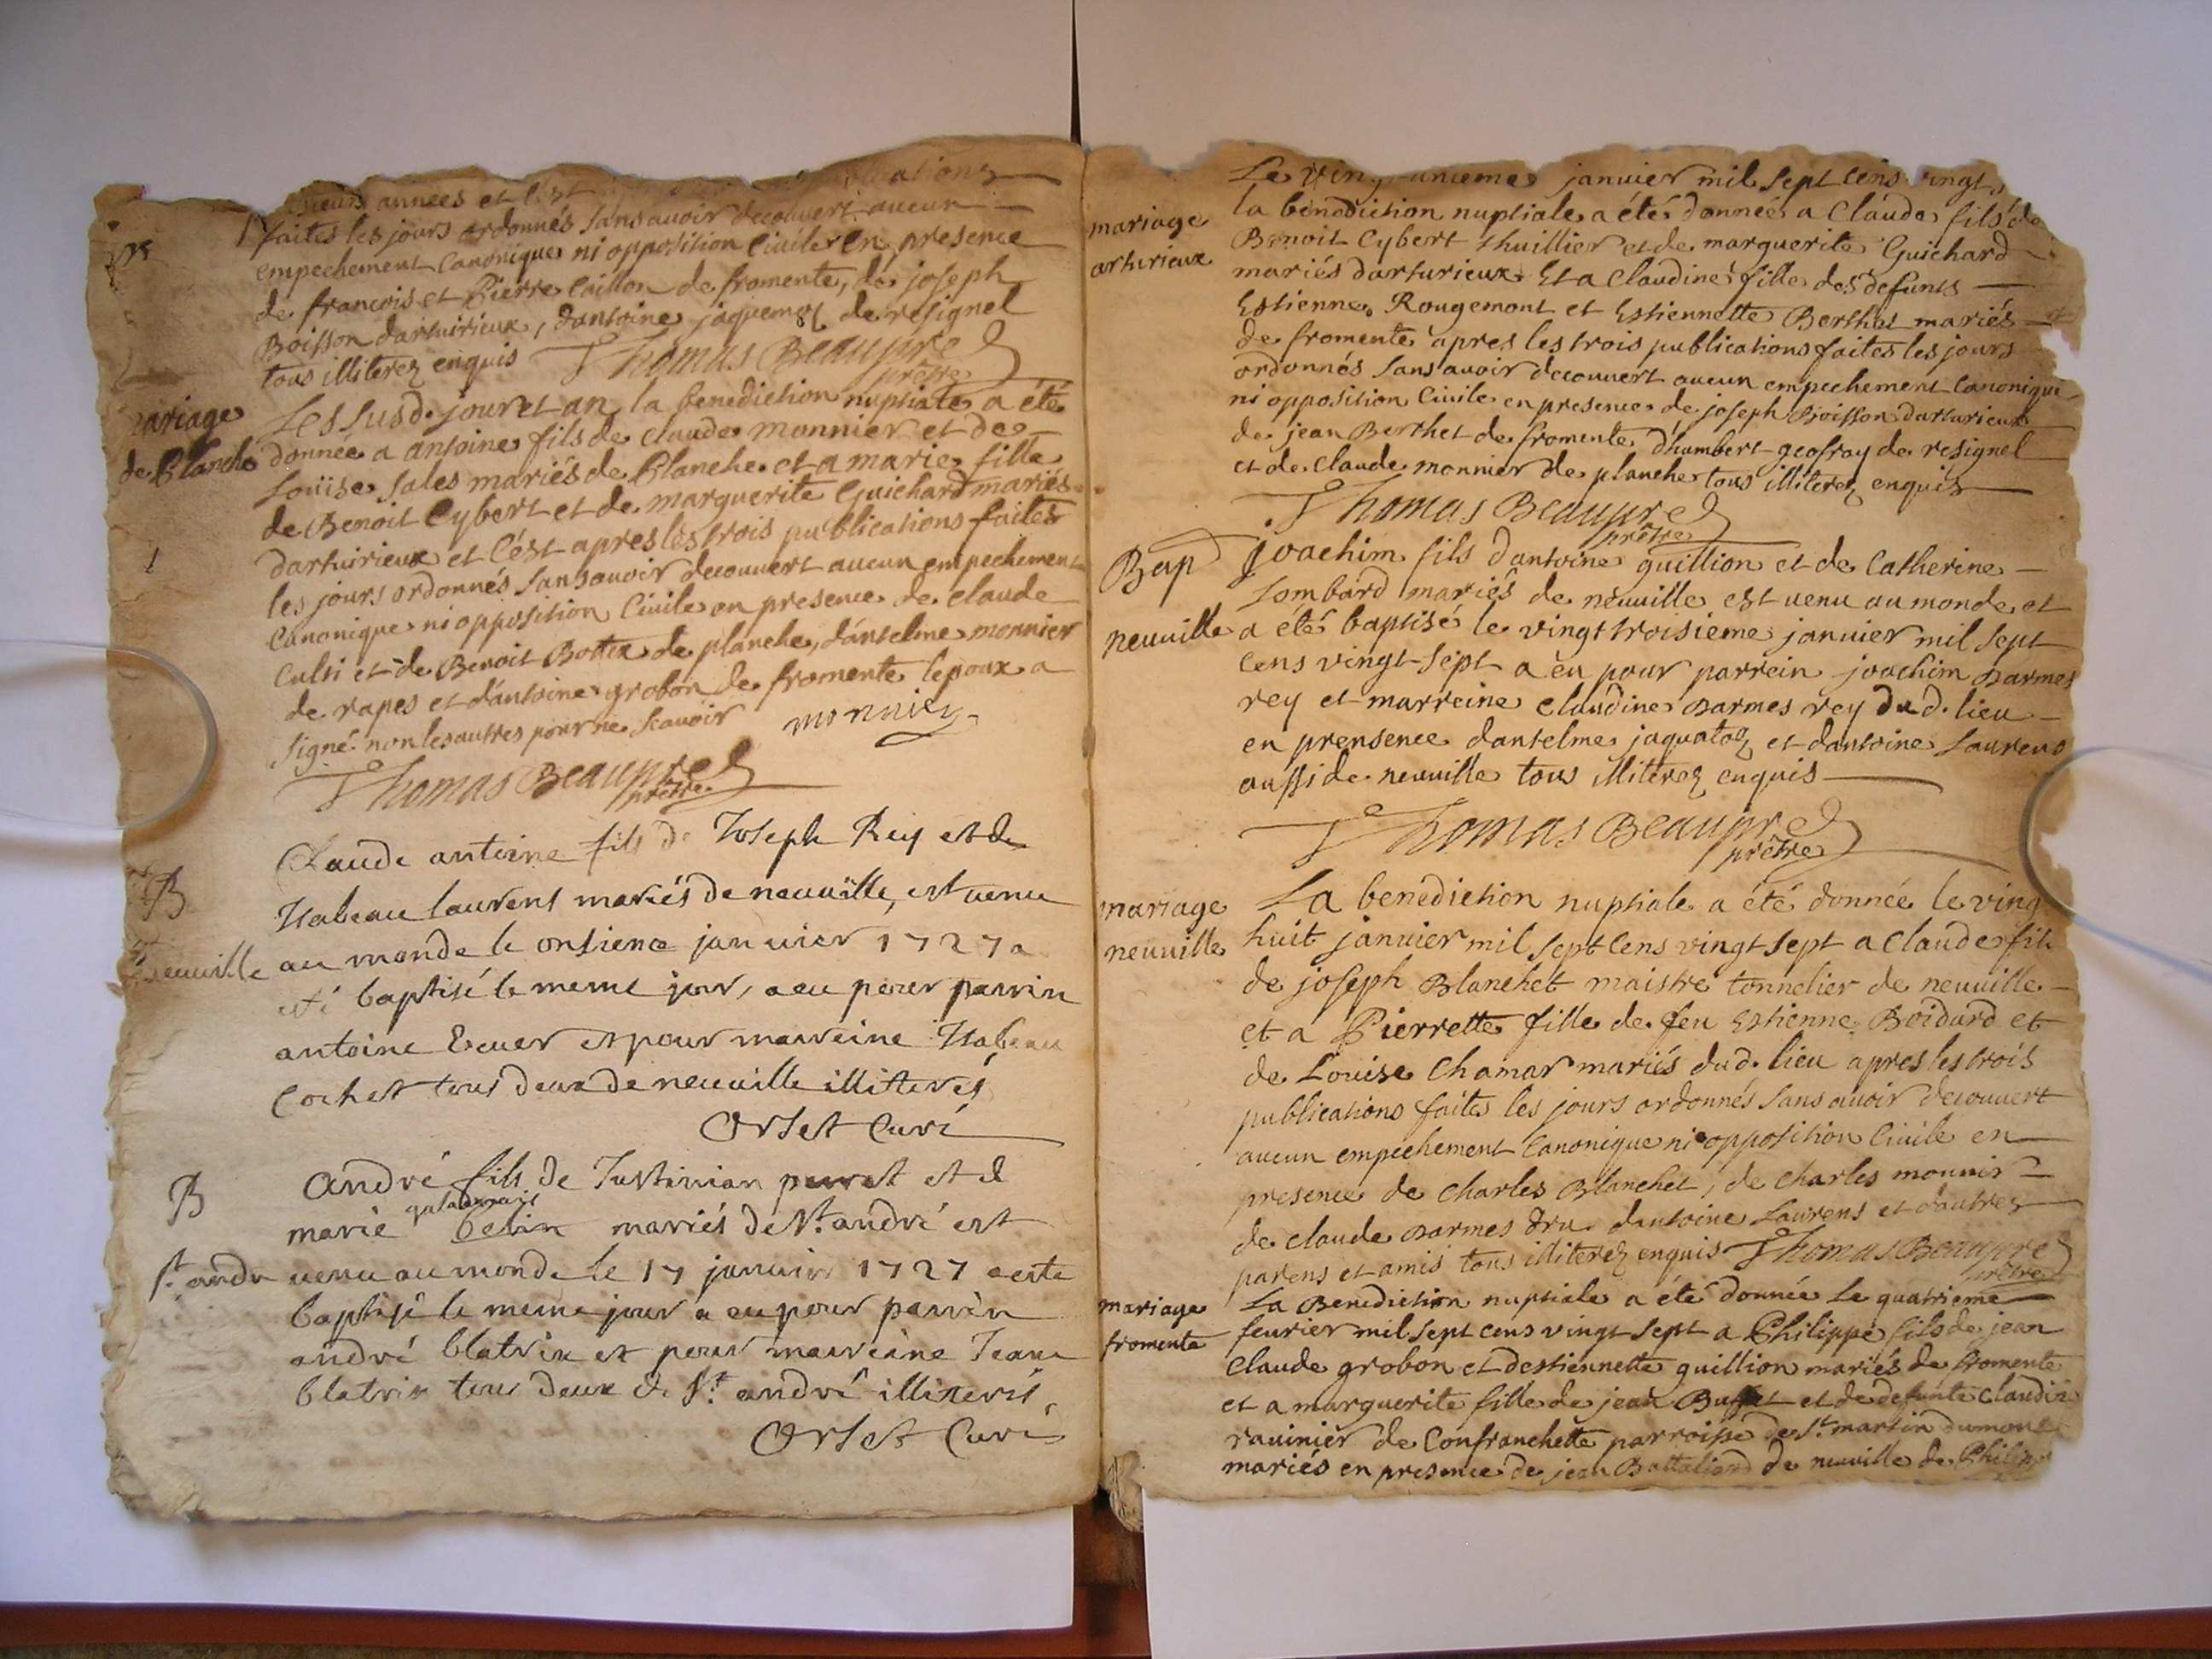 années et c'est
faites les jours ordonnés sans avoir decouvert aucun
empechement canonique ni opposition civile en presence
de francois et Pierre Caillon de fromente, de joseph
Boisson darturieux, dantoine jaquemoz de resignel
tous illiterez enquis Thomas Beaupre
prêtre
mariage
de Blanche
Les susd. jour et an la benediction nuptiale a été
donnée a antoine fils de claude monnier et de
Louise sales mariés de Blanche et a marie fille
de Benoit Cybert et de marguerite Guichard mariés
darturieux et c'ést apres les trois publications faites
les jours ordonnés sans avoir decouvert aucun empechement
canonique ni opposition civile en presence de claude
Culti et de Benoit Bottex de planche, dantelme monnier
de rapes et dantoine grobon de fromente lepoux a
signé non les autres pour ne scavoir monnier
Thomas Beaupre
prêtre
B
neuville
Claude antoine fils de Joseph Rey et de
Isabeau laurent mariés de neuville, est venu
au monde le onsieme janvier 1727 a
eté baptisé le meme jour, a eu pour parrin
antoine Ecuer et pour marreine Isabeau
Cochet tous deux de neuville illiterés
Orset Curé
B
St. andre
André fils de Justinian perret et de
marie belin mariés de St. andré est
venu au monde le 17 janvier 1727 a esté
baptisé le meme jour a eu pour parrin
andré blatrix et pour marreine Jeane
blatrix tous deux de St. andré illiterés,
Orset Curé
mariage
arturieux
Le vingt unieme janvier mil sept cens vingt
la benediction nuptiale a été donnée a Claude fils de
Benoit Cybert thuillier et de marguerite Guichard
mariés darturieux Et a Claudine fille des defunts
Estienne Rougemont et Estiennette Berthet mariés
de fromente apres les trois publications faites les jours
ordonnés sans avoir decouvert aucun empechement canonique
ni opposition civile en presence de joseph Boisson darturieux
de jean Berthet de fromente d'humbert geofray de resignel
et de claude monnier de planche tous illiterez enquis
Thomas Beaupre
prêtre
Bap
neuville
joachim fils dantoine guillion et de Catherine
Lombard mariés de neuville est venu au monde et
a été baptisé le vingt troisieme janvier mil sept
cens vingt sept a eu pour parrein joachim Darmes
rey et marreine claudine Darmes rey dud. lieu
en prensence dantelme jaquatoz et dantoine Laurens
aussi de neuville tous illiterez enquis
Thomas Beaupre
prêtre
mariage
neuville
La benediction nuptiale a été donnée le ving
huit janvier mil sept cens vingt sept a Claude fils
de joseph Blanchet maistre tonnelier de neuville
et a Pierrette fille de feu Estienne Boidard et
de Louise Chamar mariés dud. lieu apres les trois
publications faites les jours ordonnés sans avoir decouvert
aucun empechement canonique ni opposition civile en
presence de charles Blanchet, de charles monnir
de claude Darmes dru dantoine Laurens et dautres
parens et amis tous illiterez enquis Thomas Beaupre
prêtre
mariage
fromente
La Benediction nuptiale a été donnée le quatrieme
feurier mil sept cens vingt sept a Philippe fils de jean
claude grobon et destiennette guillion mariés de fromente
et a marguerite fille de jean Buffet et de defunte claudine
rauinier de Confranchette parroisse de St. martin dumont
mariés en presence de jean Battaliard de neuville de